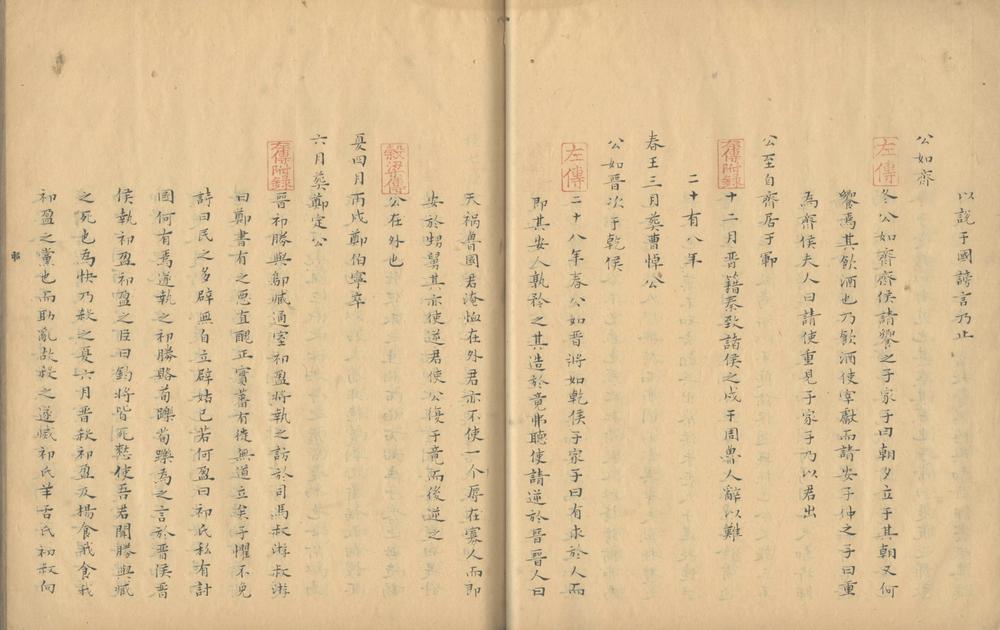 以說于國謗言乃止
公如齊
左傳
冬公如齊齊侯請饗之子家子曰朝夕立于其朝又何
饗焉其飲酒也乃飲酒使宰獻而請安子仲之子曰重
為齊侯夫人曰請使重見子家子乃以君出
公至自齊居于鄆
左傳附錄
十二月晉籍秦致諸侯之戍于周魯人辭以難
二十有八年
春王三月葬曹悼公
公如晉次于乾侯
左傳
二十八年春公如晉將如乾侯子家子曰有求於人而
即其安人孰矜之其造於竟弗聽使請逆於晉晉人曰
天禍魯國君淹恤在外君亦不使一个辱在寡人而即
安於甥舅其亦使逆君使公復于竟而後逆之
穀梁傳
公在外也
夏四月丙戌鄭伯寧卒
六月葬鄭定公
左傳附錄
晉祁勝與鄔臧通室祁盈將執之訪於司馬叔游叔游
曰鄭書有之惡直醜正實蕃有徒無道立矣子懼不免
詩曰民之多辟無自立辟姑已若何盈曰祁氏私有討
國何有焉遂執之祁勝賂荀躒荀躒為之言於晉侯晉
侯執祁盈祁盈之臣曰鈞將皆死憖使吾君聞勝與臧
之死也為快乃殺之夏六月晉殺祁盈及揚食我食我
祁盈之黨也而助亂故殺之遂滅祁氏羊舌氏初叔向